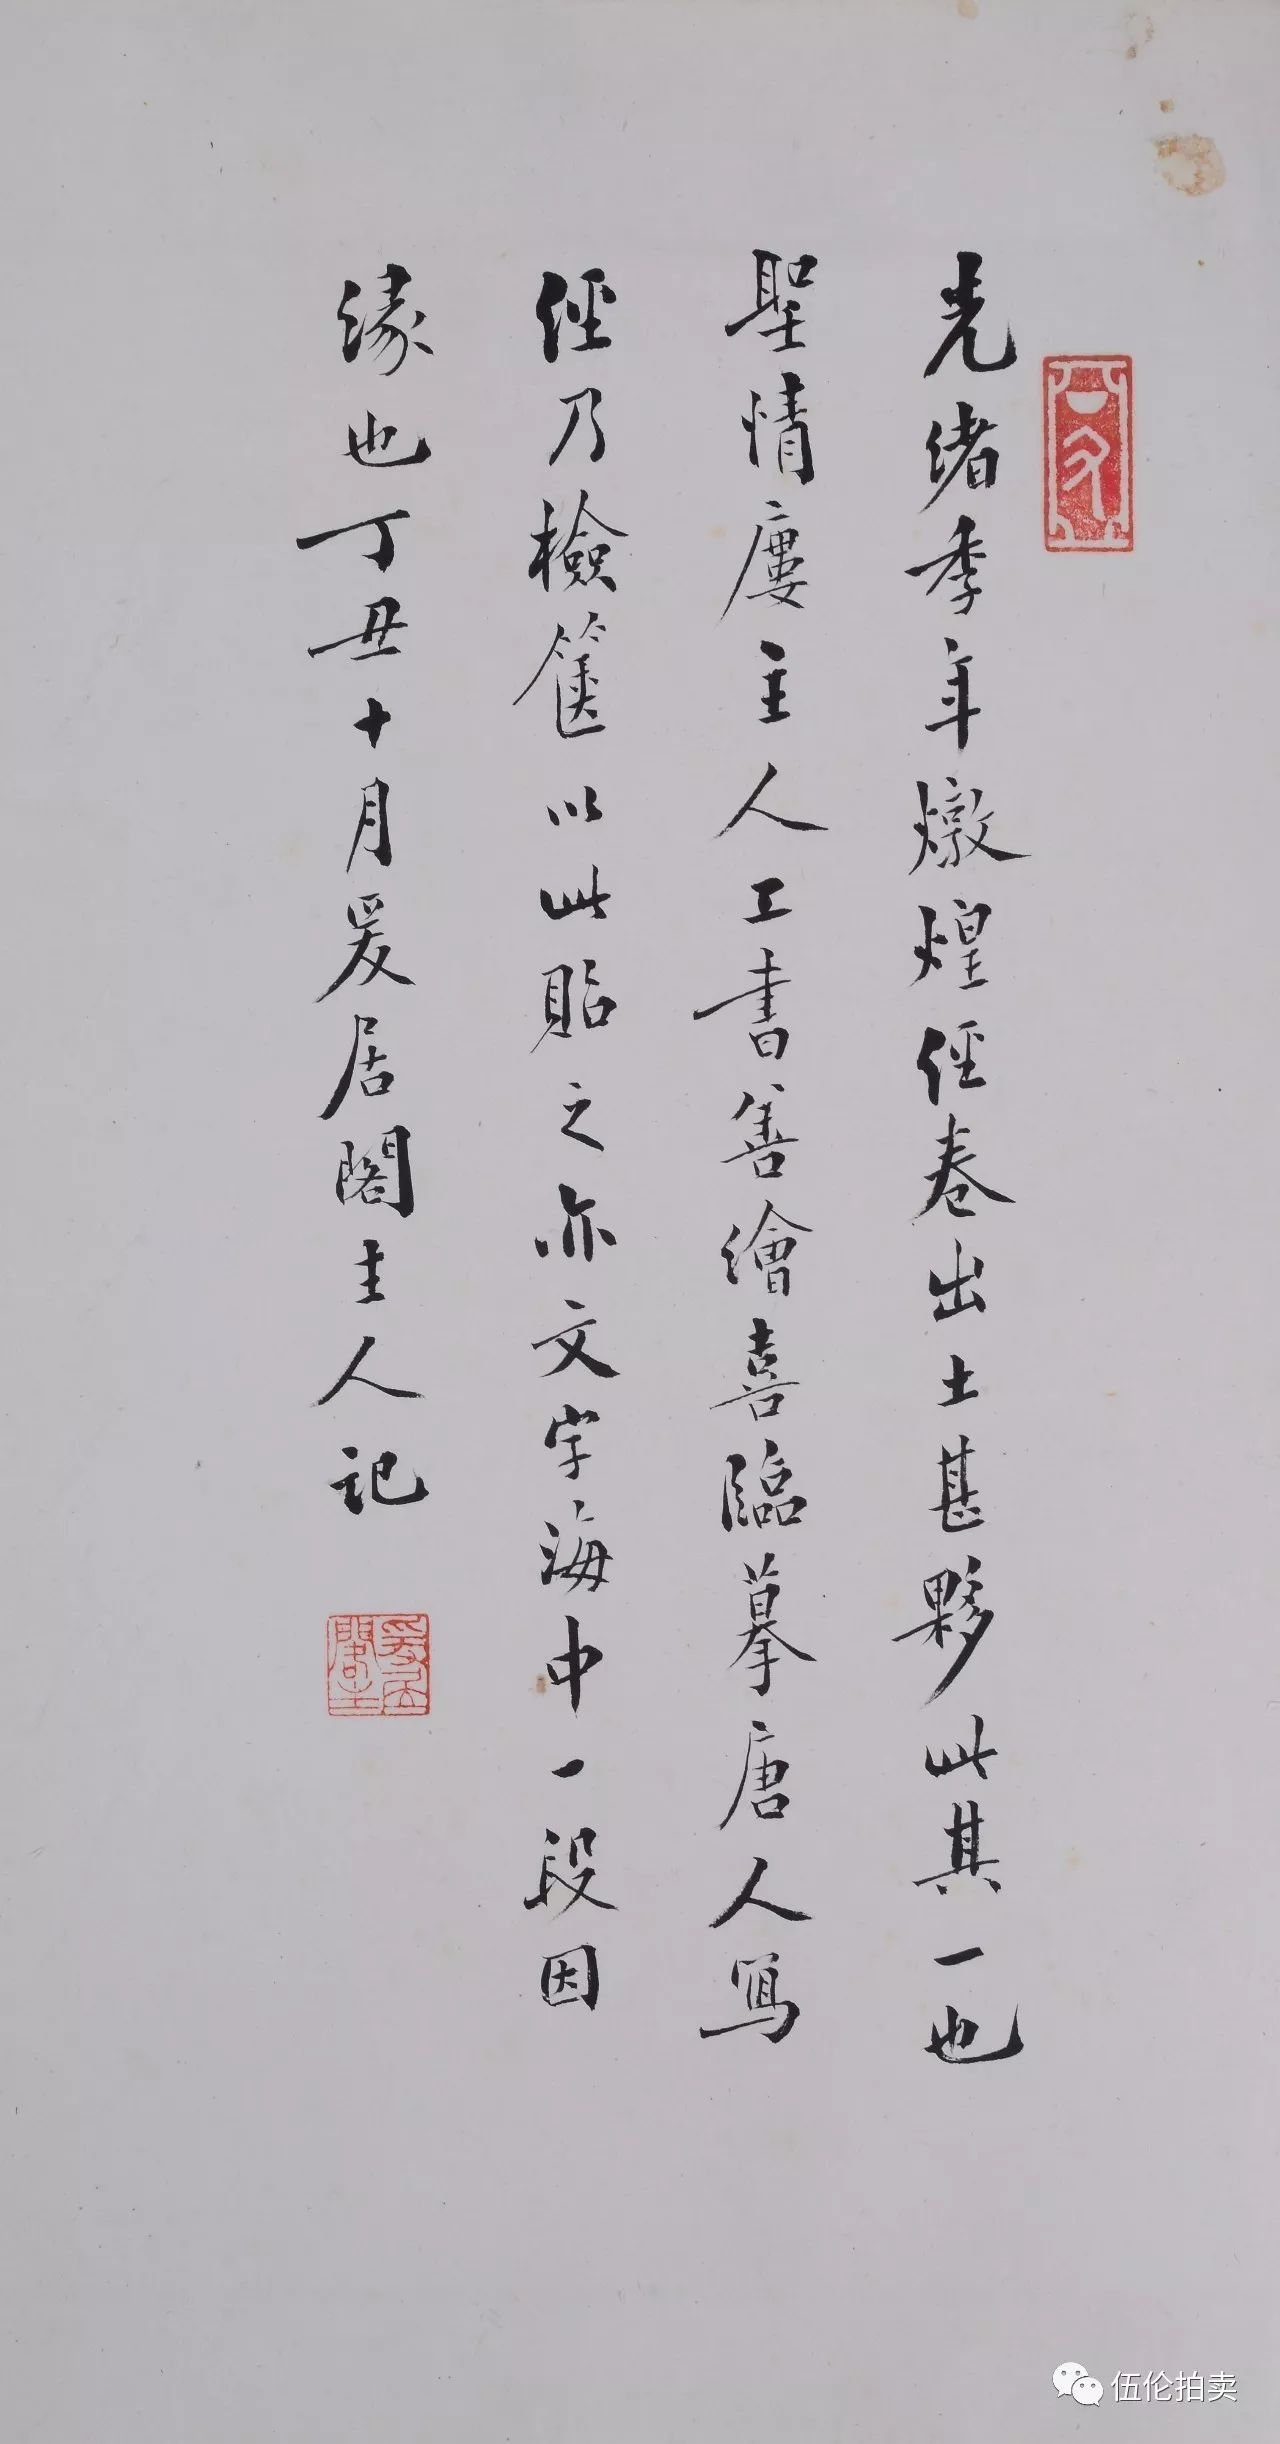 光緒季年燉煌經卷出土甚夥此其一也
聖情廔主人工書善繪喜臨摹唐人寫
經乃檢篋以此貽之亦文字海中一段因
緣也丁丑十月爰居閣主人記
爰居閣主
伍伦拍卖